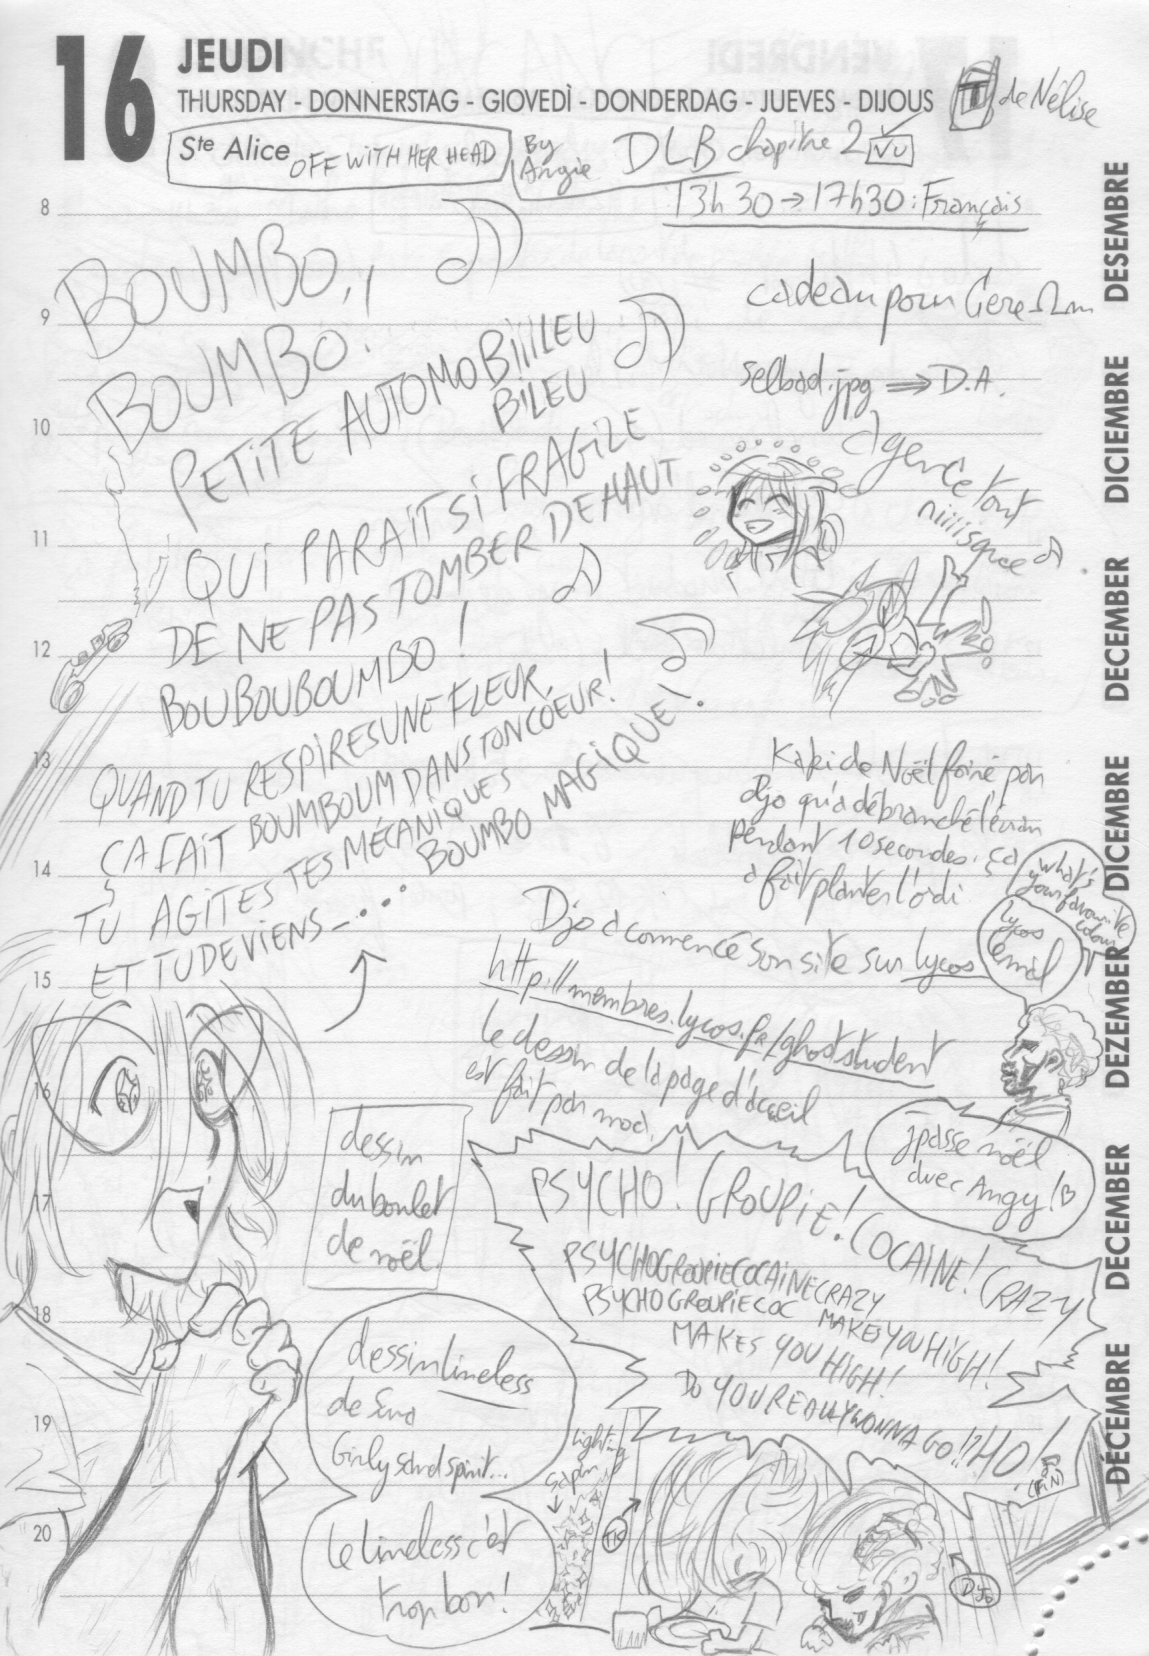 16 JEUDI
THURSDAY - DONNERSTAG - GIOVEDÌ - DONDERDAG - JUEVES - DIJOUS
T de Nélise
Ste Alice OFF WITH HER HEAD
By Angie
DLB chapitre 2 VU
13h30 → 17h30 : Français
8
9
10
11
12
13
14
15
16
17
18
19
20
BOUMBO, !
BOUMBO !
PETITE AUTOMOBIIILEU
BILEU
QUI PARAIT SI FRAGILE
DE NE PAS TOMBER DE HAUT
BOUBOUBOUMBO !
QUAND TU RESPIRES UNE FLEUR,
ÇA FAIT BOUMBOUM DANS TON COEUR !
TU AGITES TES MÉCANIQUES
ET TU DEVIENS...
BOUMBO MAGIQUE !
cadeau pour
selbad.jpg ⇒ D.A.
agence tout
niiiisque
Kaki de Noël foiré par
Djo qu'a débranché l'écran
pendant 10 secondes. ça
a fait planter l'ordi
what's
your favourite
colour
lycos
émail
Djo a commencé son site sur lycos
http://membres.lycos.fr/ghoststudent
le dessin de la page d'acceil
est fait par moa.
j'passe noël
avec Angy !
dessin
du boulet
de noël
PSYCHO ! GROUPIE ! COCAINE ! CRAZY
PSYCHOGROUPIECOCAINECRAZY
PSYCHOGROUPIECOC MAKES YOU HIGH !
MAKES YOU HIGH !
DO YOU REALLY WONNA GO !! ? HO !
(FIN)
dessin lineless
de
Girly spirit...
le lineless c'est
trop bon !
lighting
sapin
TK
DJo
DESEMBRE
DICIEMBRE
DECEMBER
DICEMBRE
DEZEMBER
DECEMBER
DECEMBRE